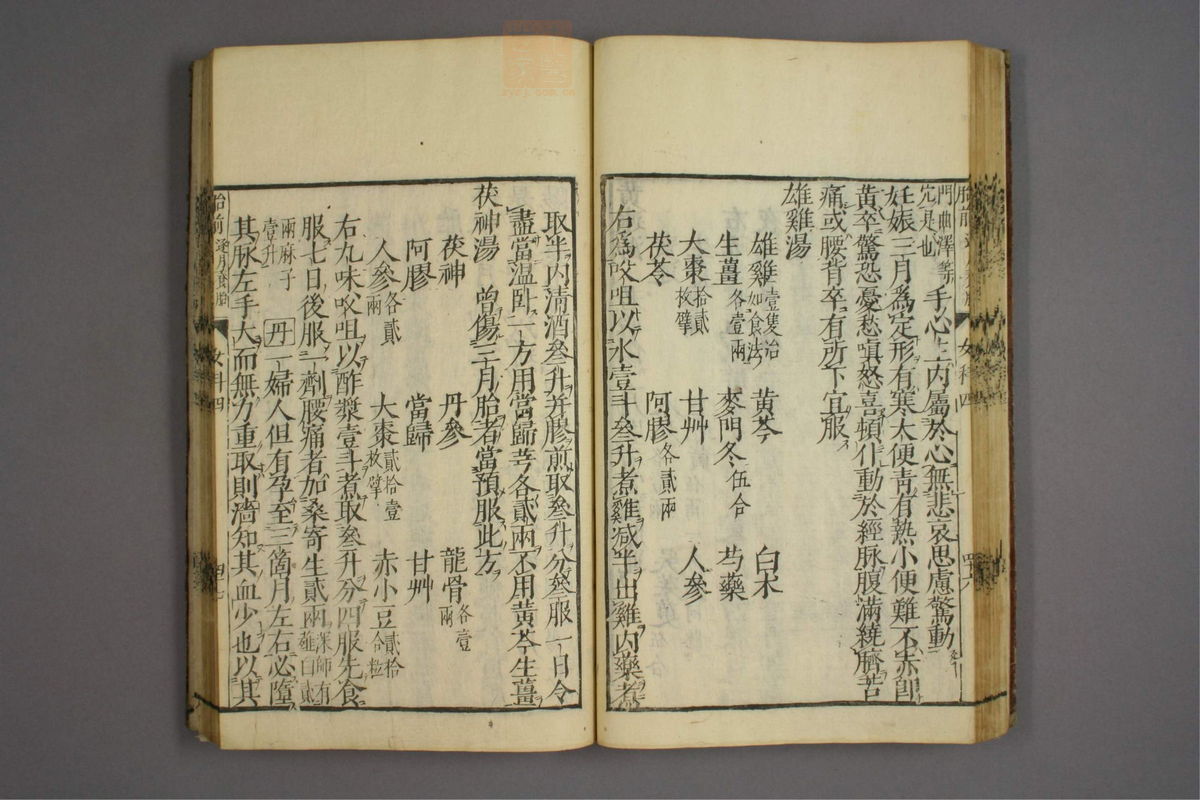 門曲澤等穴是也 手心主內屬於心無悲哀思慮驚動
妊娠三月爲定形有寒大便青有熱小便難不赤卽
黃卒驚恐憂愁嗔怒喜頓仆動於經脉腹滿繞臍苦
痛或腰背卒有所下宜服
雄雞湯
雄雞壹隻治如食法 黃芩 白朮
生薑各壹兩 麥門冬伍合 芍藥
大棗拾貳枚擘 甘艸 人參
茯苓 阿膠各貳兩
右爲㕮咀以水壹斗叄升煮雞減半出雞內藥煮
取半內清酒叄升并膠煎取叄升分叄服一日令
盡當溫卧一方用當歸芎各貳兩不用黃芩生薑
茯神湯 曾傷三月胎者當預服此方
茯神 丹參 龍骨各壹兩
阿膠 當歸 甘艸
人參各貳兩 大棗貳拾壹枚擘 赤小豆貳拾壹粒
右九味㕮咀以酢漿壹斗煮取叄升分四服先食
服七日後服一劑腰痛者加桑寄生貳兩深師有薤白貳
兩麻子壹升 丹一婦人但有孕至三箇月左右必墮
其脉左手大而無力重取則濇知其血少也以其
胎前 逐月養胎
女科四
四七
女科四
四六